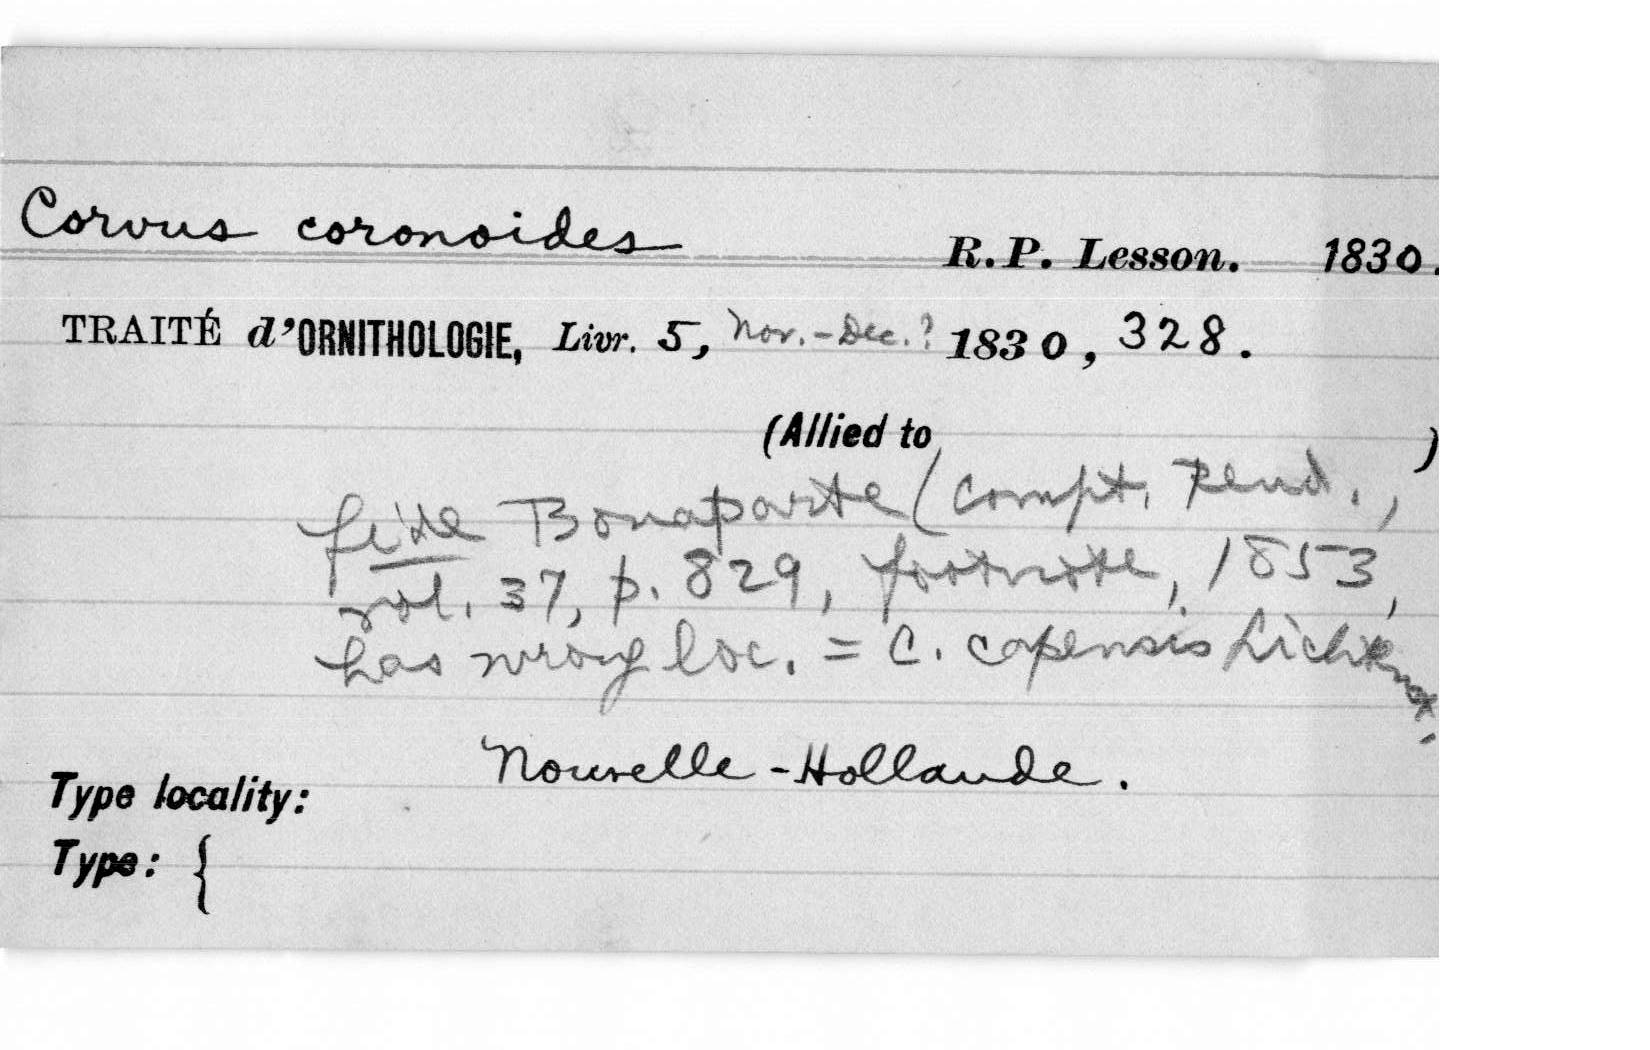 Corvus coronoides R.P. Lesson. 1830.
TRAITÉ d'ORNITHOLOGIE, Livr. 5, Nov.-Dec.? 1830, 328.
(Allied to )
fide Bonaparte (Compt. Rend.,
vol. 37, p. 829, footnote, 1853,
has wrong loc. = C. capensis
Nouvelle-Hollande.
Type locality:
Type: {